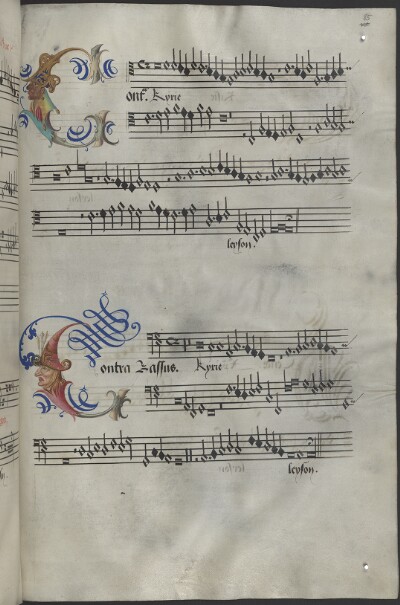 Cont^a. Kyrie
leyson.
Contra Bassus. Kyrie
leyson.